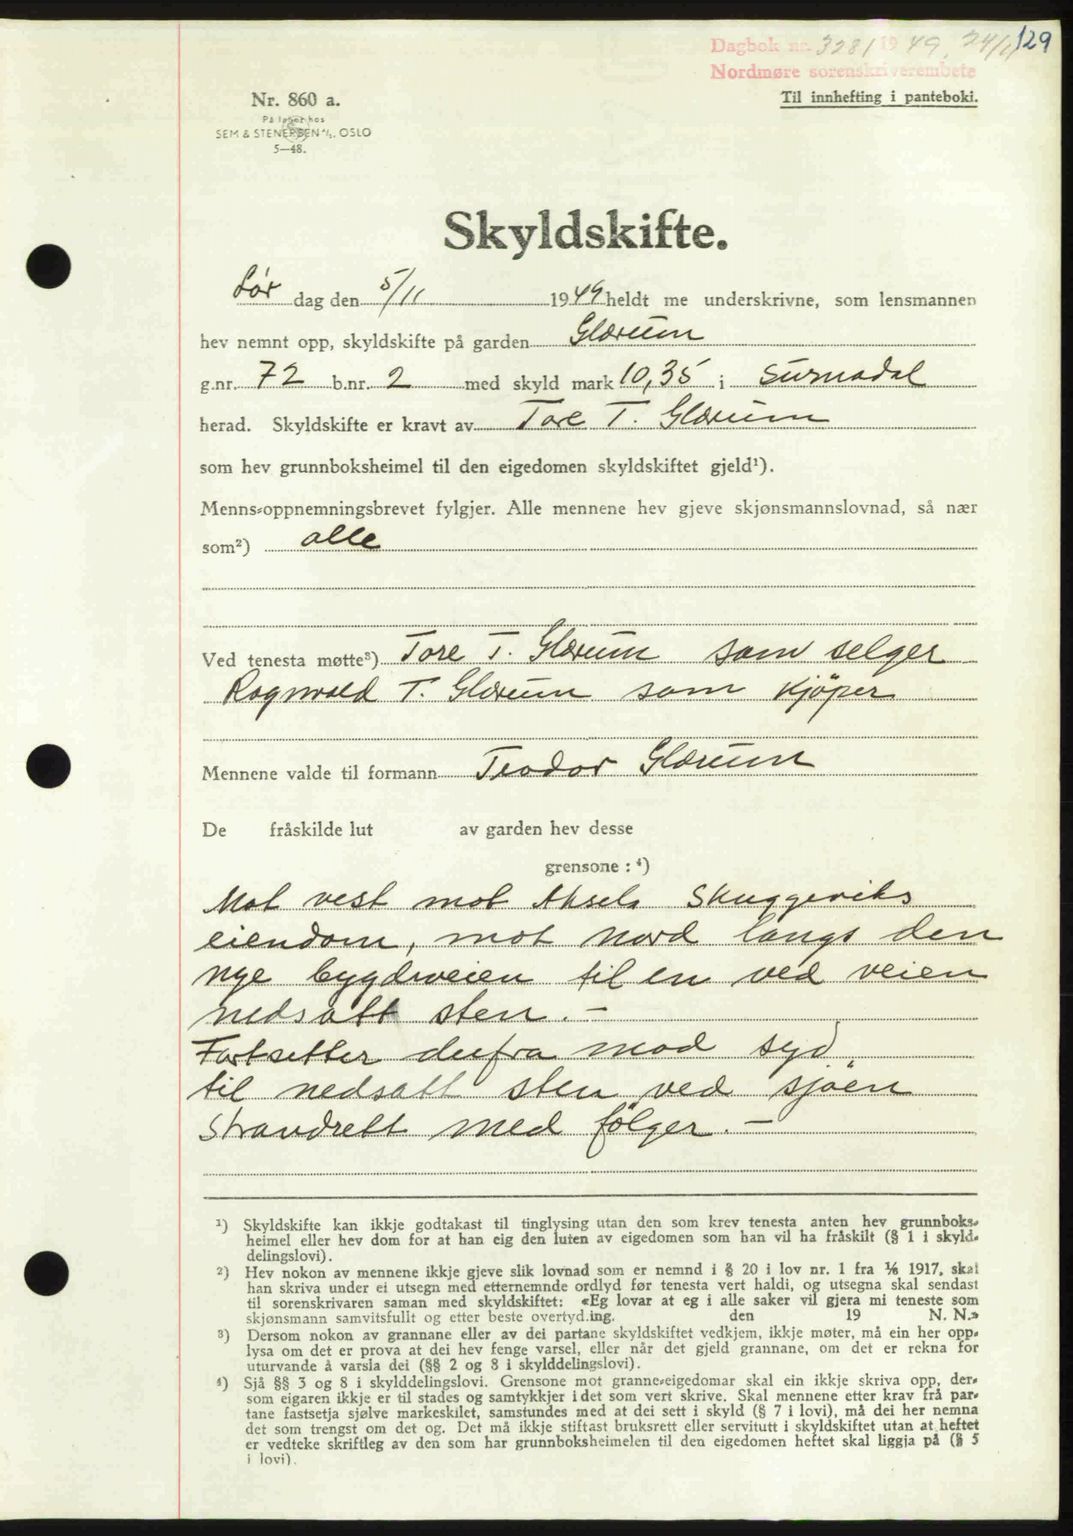 129
Dagbok nr. 3281 1949, 24/11
Nordmøre sorenskriverembete
Til innhefting i panteboki.
Nr. 860 a.
På lager hos
SEM & STENERSEN A/S. OSLO
5—48.
Skyldskifte.
Lør dag den 5/11 1949 heldt me underskrivne, som lensmannen
hev nemnt opp, skyldskifte på garden Glærum
g.nr. 72 b.nr. 2 med skyld mark 10,35 i Surnadal
herad. Skyldskifte er kravt av Tore T. Glærum
som hev grunnboksheimel til den eigedomen skyldskiftet gjeld¹).
Menns-oppnemningsbrevet fylgjer. Alle mennene hev gjeve skjønsmannslovnad, så nær
som²) alle
Ved tenesta møtte³) Tore T. Glærum som selger
Ragnvald T. Glærum som kjöper
Mennene valde til formann Teodor Glærum
De fråskilde lut av garden hev desse
grensone : ⁴)
Mot vest mot Aksels Skuggeviks
eiendom, mot nord langs den
nye bygdeveien til en ved veien
nedsatt sten. —
Fortsetter derfra mod syd
til nedsatt sten ved sjöen
Strandrett med fölger. —
¹) Skyldskifte kan ikkje godtakast til tinglysing utan den som krev tenesta anten hev grunnboks-
heimel eller hev dom for at han eig den luten av eigedomen som han vil ha fråskilt (§ 1 i skyld-
delingslovi).
²) Hev nokon av mennene ikkje gjeve slik lovnad som er nemnd i § 20 i lov nr. 1 fra ¹⁄₆ 1917, skal
han skriva under ei utsegn med etternemnde ordlyd før tenesta vert haldi, og utsegna skal sendast
til sorenskrivaren saman med skyldskiftet: «Eg lovar at eg i alle saker vil gjera mi teneste som
skjønsmann samvitsfullt og etter beste overtyding. den 19 N. N.»
³) Dersom nokon av grannane eller av dei partane skyldskiftet vedkjem, ikkje møter, må ein her opp-
lysa om det er prova at dei hev fenge varsel, eller når det gjeld grannane, om det er rekna for
uturvande å varsla dei (§§ 2 og 8 i skylddelingslovi).
⁴) Sjå §§ 3 og 8 i skylddelingslovi. Grensone mot granne-eigedomar skal ein ikkje skriva opp, der-
som eigaren ikkje er til stades og samtykkjer i det som vert skrive. Skal mennene etter krav frå par-
tane fastsetja sjølve markeskilet, samstundes med at dei sett i skyld (§ 7 i lovi), må dei her nemna
det som trengst om det og. Det må ikkje stiftast bruksrett eller servitutt i skyldskiftet utan at heftet
er vedteke skriftleg av den som har grunnboksheimelen til den eigedomen heftet skal liggja på (§ 5
i lovi).